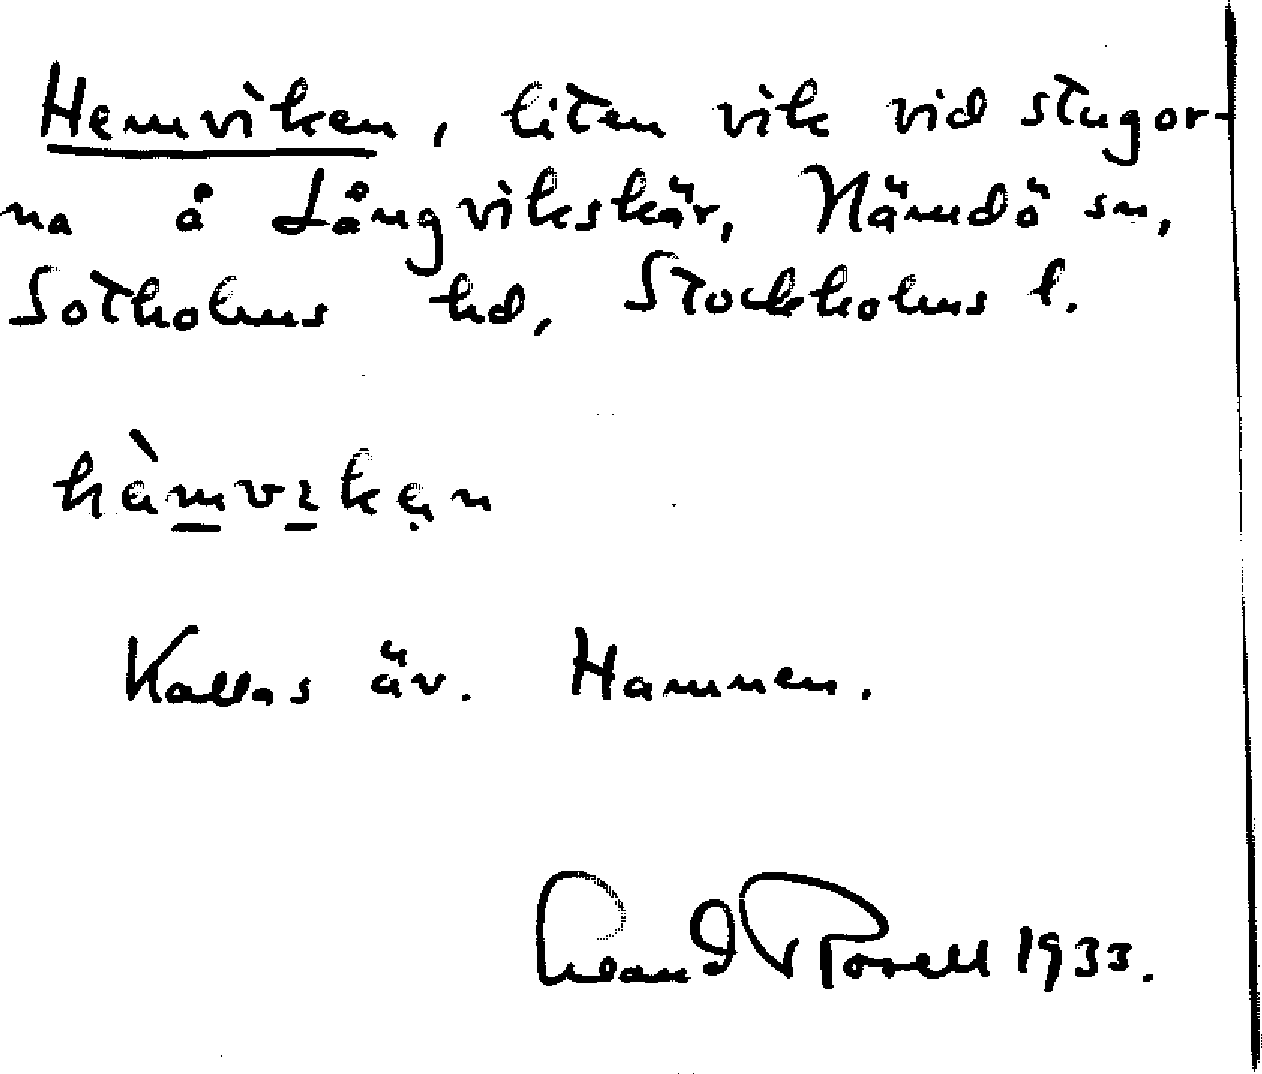 Hemviken, liten vik vid stugor-
na å Långvikskär, Nämdö sn,
Sotholms hd, Stockholms l.
hàmvikən
Kallas äv. Hamnen.
Erland Rosell 1933.